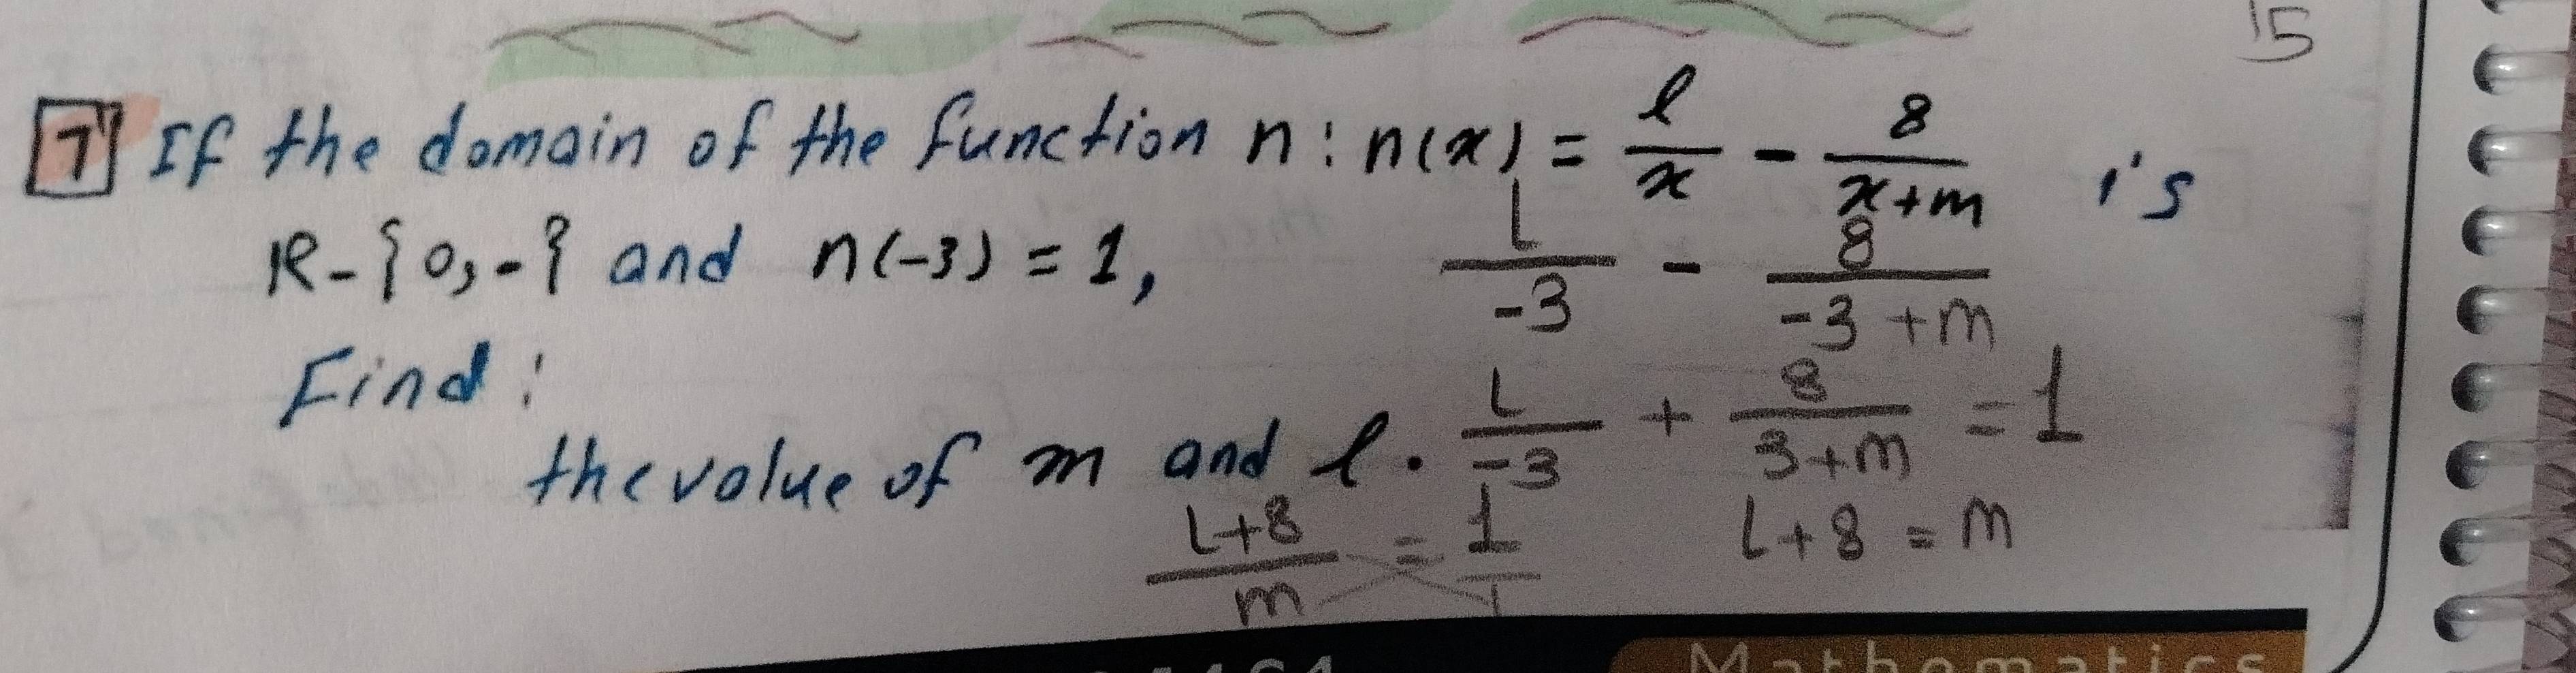 15
7 If the domain of the function n : n(x) = l/x - 8/(x+m) is
R - { 0, - } and n(-3) = 1,
L/-3 - 8/(-3+m)
Find :
the value of m and l .
L/-3 + 8/(3+m) = 1
(L+8)/m = 1/1
L+8 = m
Mathematics